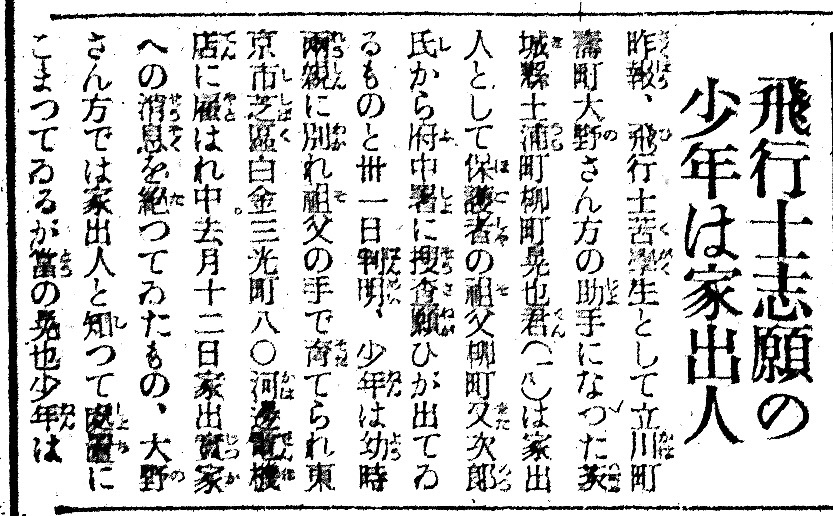 飛行士志願の
少年は家出人
昨報、飛行士苦學生として立川町
壽町大野さん方の助手になつた茨
城縣土浦町柳町晃也君(一八)は家出
人として保護者の祖父柳町又次郎
氏から府中署に捜査願ひが出てゐ
るものと卅一日判明、少年は幼時
兩親に別れ祖父の手で育てられ東
京市芝區白金三光町八〇河邊電機
店に雇はれ中去月十二日家出實家
への消息を絶つてゐたもの、大野
さん方では家出人と知つて處置に
こまつてゐるが當の晃也少年は